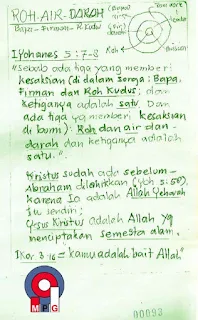 ROH-AIR-DARAH
Bapa-Firman-R.Kudus
Roh
I Yohanes 5:7-8
"Sebab ada tiga yang memberi
kesaksian (di dalam Sorga: Bapa,
Firman dan Roh Kudus; dan
ketiganya adalah satu. Dan
ada tiga yg memberi kesaksian
di bumi): Roh dan air dan
darah dan ketiganya adalah
satu."
Kristus sudah ada sebelum
Abraham dilahirkan (Yoh 8:58),
karena Ia adalah Allah Yehovah
itu sendiri;
Yesus Kristus adalah Allah yg
menciptakan semesta alam.
I Kor 3:16 = kamu adalah bait Allah"
MPG
00093